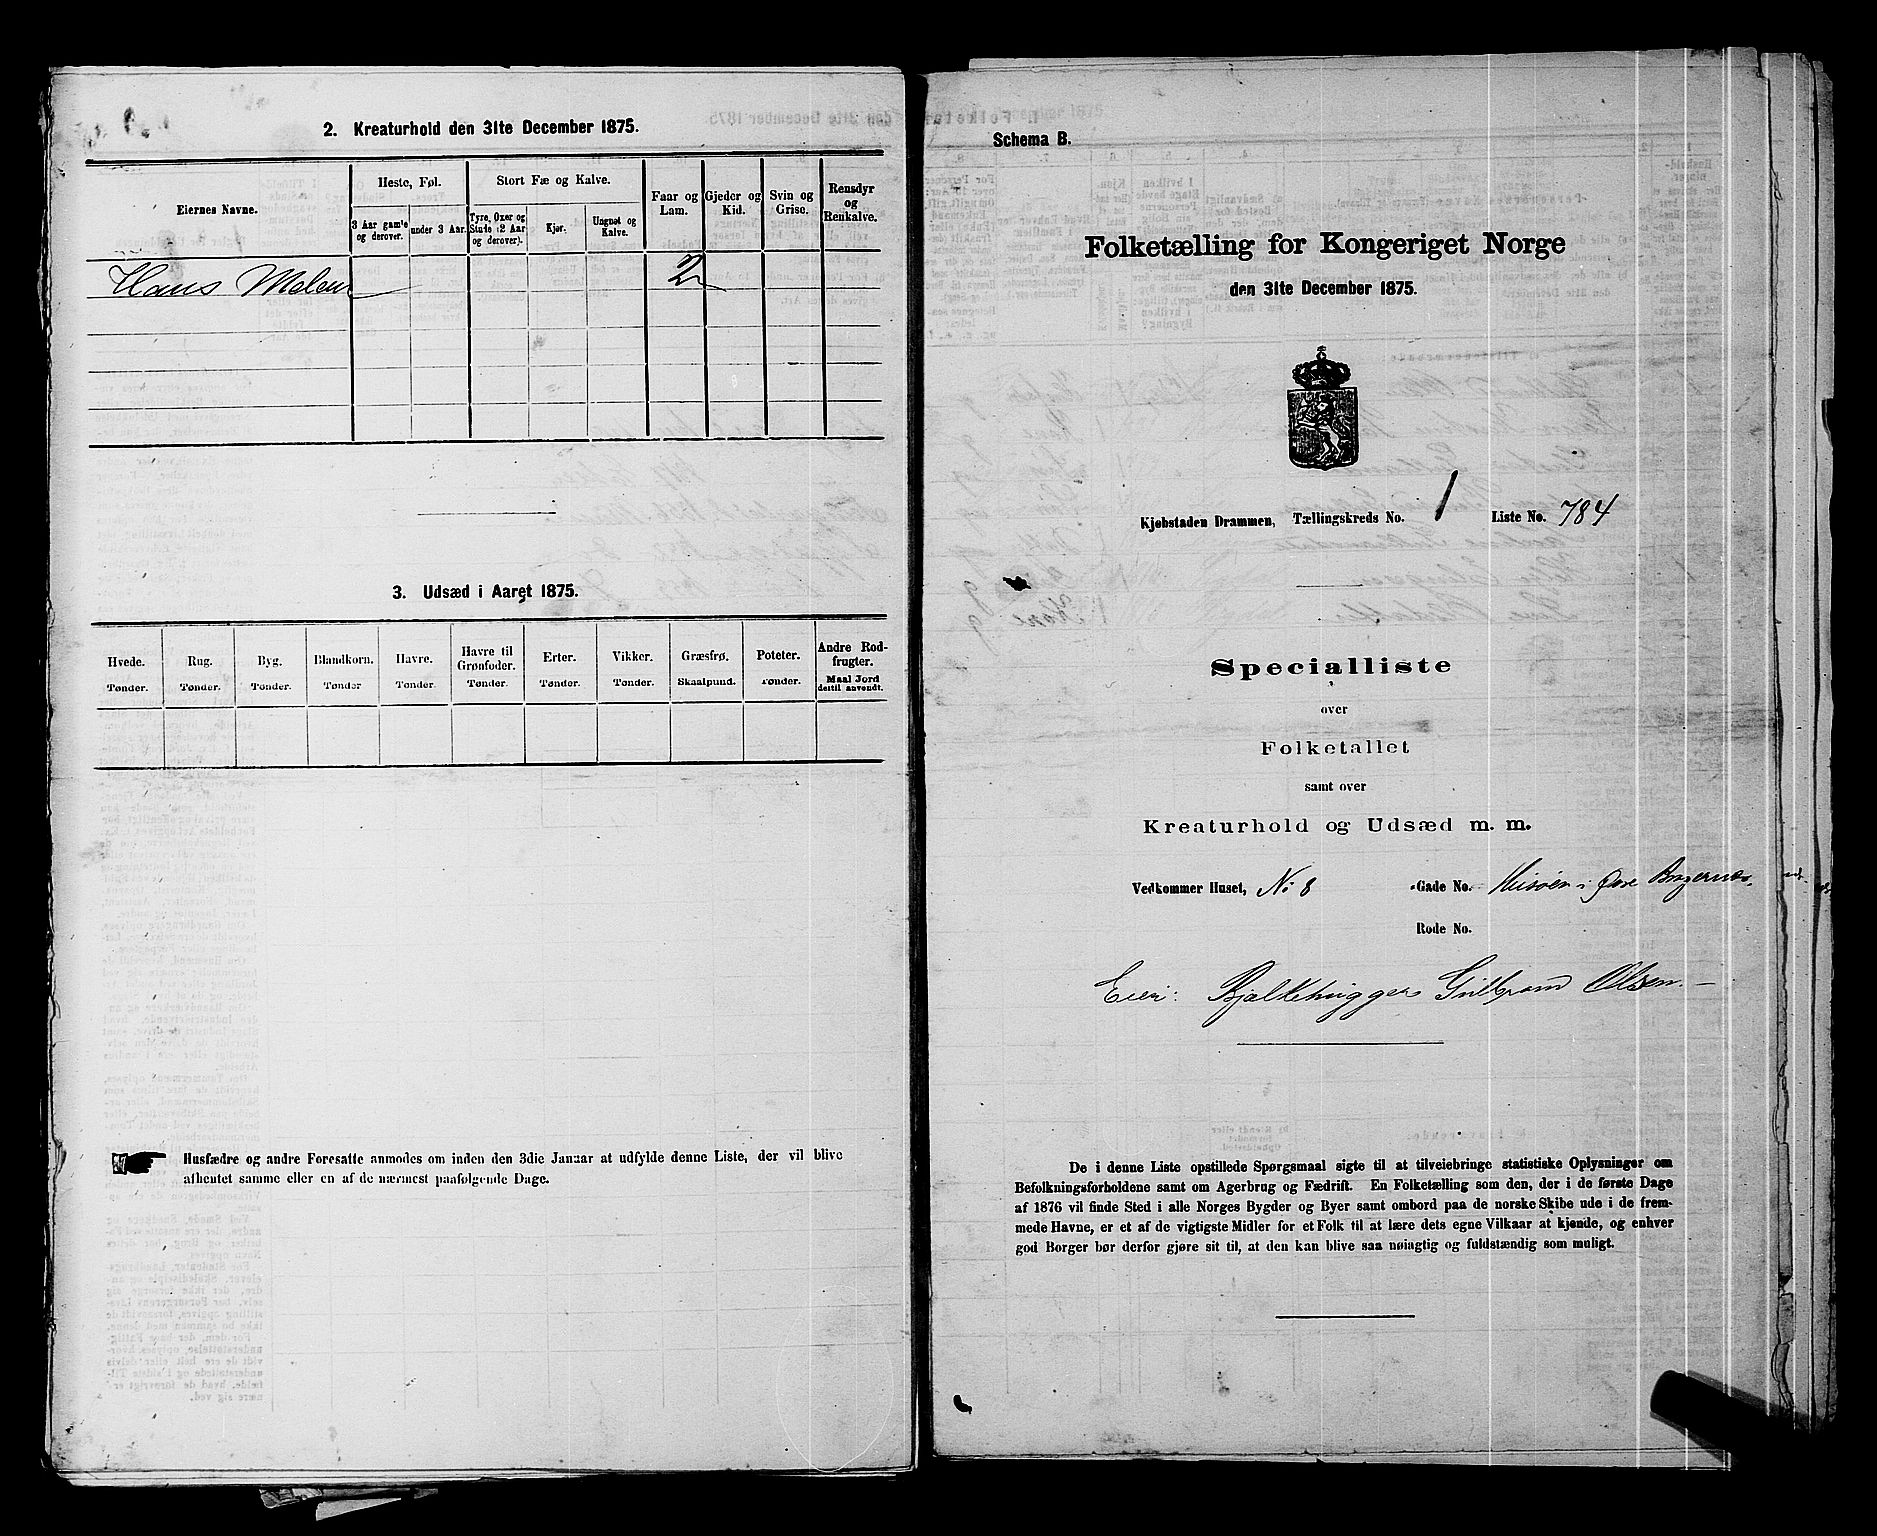 2. Kreaturhold den 31te December 1875.
Eiernes Navne.
Heste, Føl.
3 Aar gamle og derover.
under 3 Aar.
Stort Fæ og Kalve.
Tyre, Oxer og Stude (2 Aar og derover).
Kjør.
Ungnøt og Kalve.
Faar og Lam.
Gjeder og Kid.
Svin og Grise.
Rensdyr og Renkalve.
Hans Melen 2
3. Udsæd i Aaret 1875.
Hvede. Tønder.
Rug. Tønder.
Byg. Tønder.
Blandkorn. Tønder
Havre. Tønder.
Havre til Grønfoder. Tønder.
Erter. Tønder.
Vikker. Tønder.
Græsfrø. Skaalpund.
Poteter. Tønder.
Andre Rodfrugter. Maal Jord dertil anvendt.
Husfædre og andre Foresatte anmodes om inden den 3die Januar at udfylde denne Liste, der vil blive
afhentet samme eller en af de nærmest paafølgende Dage.
Schema B.
Folketælling for Kongeriget Norge
den 31te December 1875.
Kjøbstaden Drammen, Tællingskreds No. 1 Liste No. 784
Specialliste
over
Folketallet
samt over
Kreaturhold og Udsæd m. m.
Vedkommer Huset, No 8 Gade No. i Øvre Bragernæs
Rode No.
Eier: Bjælkehugger Gulbrand Olsen.
De i denne Liste opstillede Spørgsmaal sigte til at tilveiebringe statistiske Oplysninger om
Befolkningsforholdene samt om Agerbrug og Fædrift. En Folketælling som den, der i de første Dage
af 1876 vil finde Sted i alle Norges Bygder og Byer samt ombord paa de norske Skibe ude i de frem-
mede Havne, er et af de vigtigste Midler for et Folk til at lære dets egne Vilkaar at kjende, og enhver
god Borger bør derfor gjøre sit til, at den kan blive saa nøiagtig og fuldstændig som muligt.